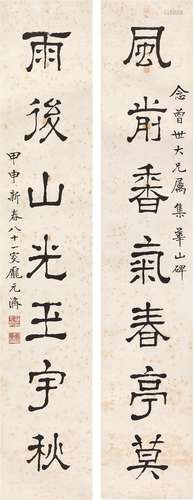 念曾世大兄属集华山碑
風前香氣春亭莫
雨後山光玉宇秋
甲申新春八十一叟龐元濟